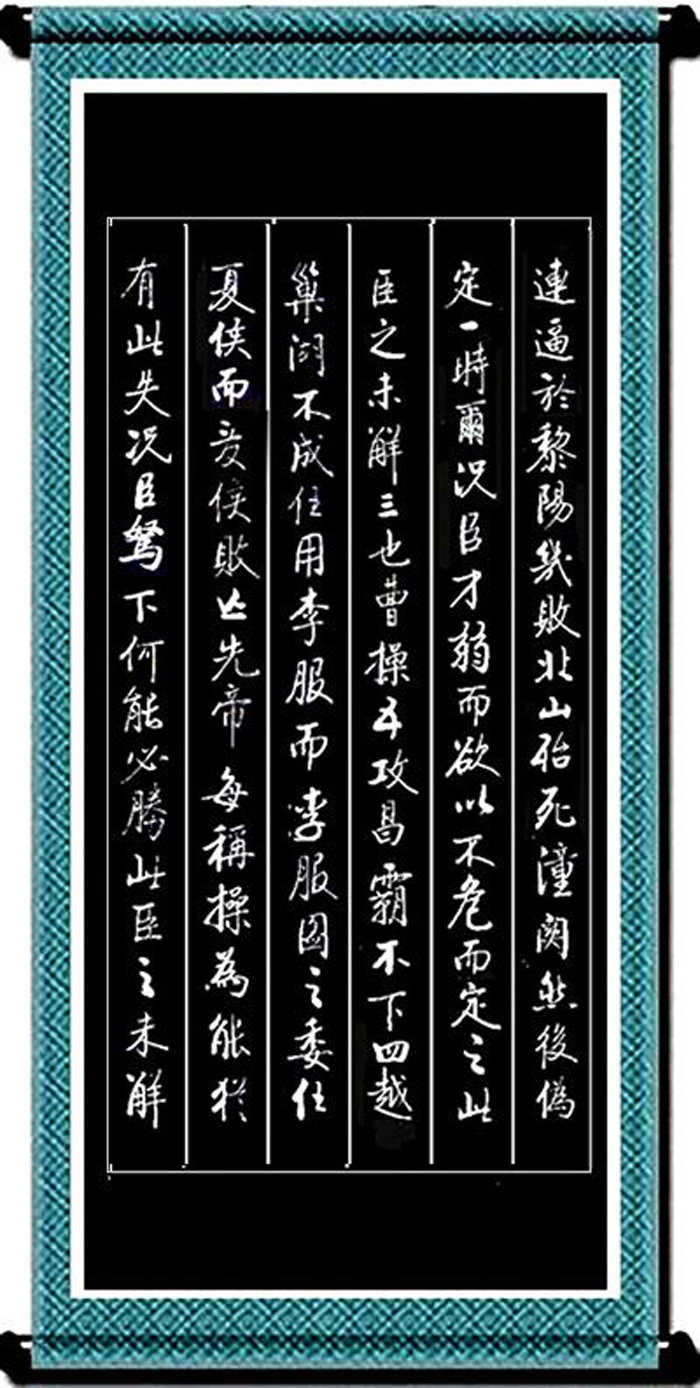 連逼於黎陽幾敗北山殆死潼関然後偽
定一時爾況臣才弱而欲以不危而定之此
臣之未解三也曹操五攻昌霸不下四越
巢湖不成任用李服而李服圖之委任
夏侯而夏侯敗亡先帝每稱操為能猶
有此失況臣駑下何能必勝此臣之未解